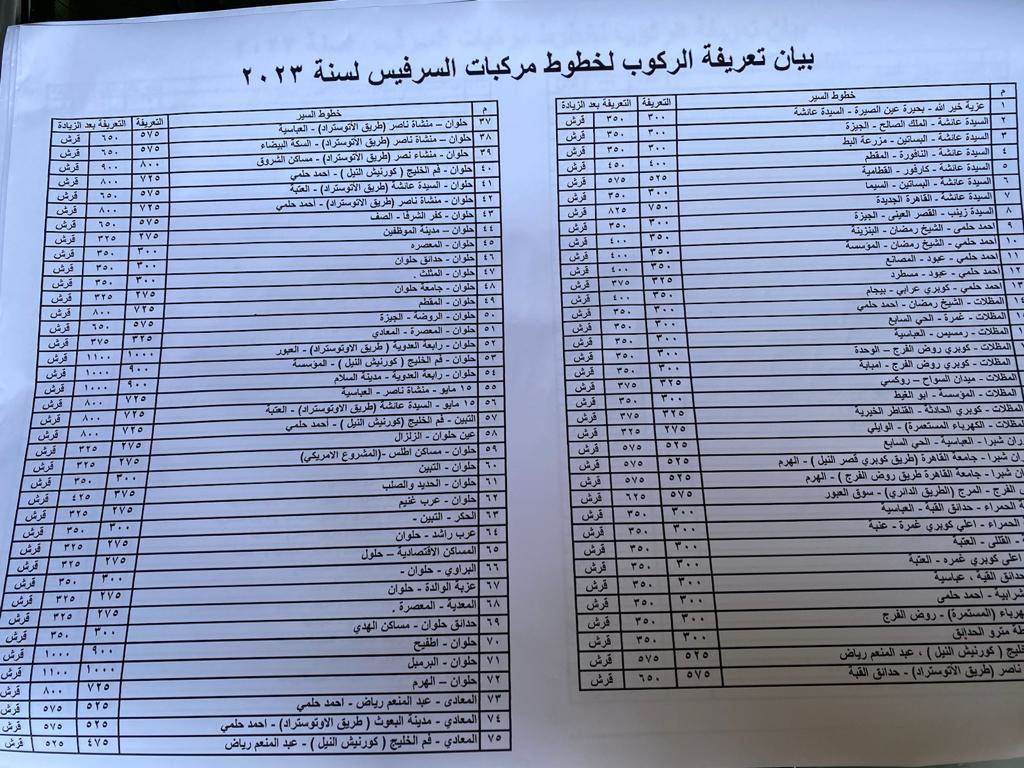 بيان تعريفة الركوب لخطوط مركبات السرفيس لسنة ٢٠٢٣
م خطوط السير التعريفة التعريفة بعد الزيادة
١ عزبة خير الله - بحيرة عين الصيرة - السيدة عائشة ٣٠٠ ٣٥٠ قرش
٢ السيدة عائشة - الملك الصالح - الجيزة ٣٠٠ ٣٥٠ قرش
٣ السيدة عائشة - البساتين - مزرعة البط ٣٠٠ ٣٥٠ قرش
٤ السيدة عائشة - النافورة - المقطم ٤٠٠ ٤٥٠ قرش
٥ السيدة عائشة - كارفور - القطامية ٥٢٥ ٥٧٥ قرش
٦ السيدة عائشة - البساتين - السيما ٣٠٠ ٣٥٠ قرش
٧ السيدة عائشة - القاهرة الجديدة ٧٥٠ ٨٢٥ قرش
٨ السيدة زينب - القصر العينى - الجيزة ٣٠٠ ٣٥٠ قرش
٩ احمد حلمى - الشيخ رمضان - البنزينة ٣٥٠ ٤٠٠ قرش
١٠ احمد حلمي - الشيخ رمضان - المؤسسة ٣٥٠ ٤٠٠ قرش
١١ احمد حلمي - عبود - المصانع ٣٥٠ ٤٠٠ قرش
١٢ احمد حلمي - عبود - مسطرد ٣٢٥ ٣٧٥ قرش
١٣ احمد حلمي - كوبري عرابي - بيجام ٣٥٠ ٤٠٠ قرش
المظلات - الشيخ رمضان - احمد حلمي ٣٠٠ ٣٥٠ قرش
المظلات - غمرة - الحي السابع ٣٠٠ ٣٥٠ قرش
المظلات - رمسيس - العباسية ٣٠٠ ٣٥٠ قرش
المظلات - كوبري روض الفرج - الوحدة ٣٠٠ ٣٥٠ قرش
المظلات - كوبري روض الفرج - امبابة ٣٠٠ ٣٥٠ قرش
المظلات - ميدان السواح – روكسي ٣٢٥ ٣٧٥ قرش
المظلات - المؤسسة - ابو الغيط ٣٠٠ ٣٥٠ قرش
المظلات - كوبري الحادثة - القناطر الخيرية ٣٢٥ ٣٧٥ قرش
المظلات - الكهرباء المستعمرة) - الوايلي ٢٧٥ ٣٢٥ قرش
ان شبرا - العباسية - الحي السابع ٥٢٥ ٥٧٥ قرش
ان شبرا - جامعة القاهرة (طريق كوبري قصر النيل ) - الهرم ٥٢٥ ٥٧٥ قرش
ان شبرا - جامعة القاهرة طريق روض الفرج ) - الهرم ٥٢٥ ٥٧٥ قرش
الفرج - المرج (الطريق الدائري) - سوق العبور ٥٧٥ ٦٢٥ قرش
ة الحمراء - حدائق القبة - العباسية ٣٠٠ ٣٥٠ قرش
الحمراء - اعلي كوبري غمرة - عتبة ٣٠٠ ٣٥٠ قرش
- القللى - العتبة ٣٠٠ ٣٥٠ قرش
اعلى كوبري غمره - العتبة ٣٠٠ ٣٥٠ قرش
حدائق القبة ، عباسية ٣٠٠ ٣٥٠ قرش
شرابية - احمد حلمى ٣٠٠ ٣٥٠ قرش
هرباء (المستمرة) - روض الفرج ٣٠٠ ٣٥٠ قرش
طة مترو الحدائق ٣٠٠ ٣٥٠ قرش
خليج ( كورنيش النيل ) ، عبد المنعم رياض ٥٢٥ ٥٧٥ قرش
ناصر (طريق الأتوستراد) - حدائق القبة ٥٧٥ ٦٥٠ قرش
م خطوط السير التعريفة التعريفة بعد الزيادة
٣٧ حلوان – منشاة ناصر (طريق الأتوستراد) - العباسية ٥٧٥ ٦٥٠ قرش
٣٨ حلوان – منشاة ناصر (طريق الأتوستراد) - السكة البيضاء ٥٧٥ ٦٥٠ قرش
٣٩ حلوان - منشاء نصر (طريق الأتوستراد) - مساكن الشروق ٨٠٠ ٩٠٠ قرش
٤٠ حلوان - فم الخليج ( كورنيش النيل ) - احمد حلمي ٧٢٥ ٨٠٠ قرش
٤١ حلوان - السيدة عائشة (طريق الأتوستراد) - العتبة ٥٧٥ ٦٥٠ قرش
٤٢ حلوان - منشاة ناصر (طريق الأتوستراد) - أحمد حلمي ٧٢٥ ٨٠٠ قرش
٤٣ حلوان - كفر الشرفا - الصف ٥٧٥ ٦٥٠ قرش
٤٤ حلوان – مدينة الموظفين ٢٧٥ ٣٢٥ قرش
٤٥ حلوان - المعصره ٣٠٠ ٣٥٠ قرش
٤٦ حلوان - حدائق حلوان ٣٠٠ ٣٥٠ قرش
٤٧ حلوان - المثلث . ٣٠٠ ٣٥٠ قرش
٤٨ حلوان - جامعة حلوان ٢٧٥ ٣٢٥ قرش
٤٩ حلوان - المقطم ٧٢٥ ٨٠٠ قرش
٥٠ حلوان - الروضة - الجيزة ٥٧٥ ٦٥٠ قرش
٥١ حلوان - المعصرة - المعادي ٣٢٥ ٣٧٥ قرش
٥٢ حلوان - رابعة العدوية ( طريق الاوتوستراد) - العبور ١٠٠٠ ١١٠٠ قرش
٥٣ حلوان - فم الخليج ( كورنيش النيل ) - المؤسسة ٩٠٠ ١٠٠٠ قرش
٥٤ حلوان - رابعة العدوية - مدينة السلام ٩٠٠ ١٠٠٠ قرش
٥٥ ١٥ مايو - منشاة ناصر - العباسية ٧٢٥ ٨٠٠ قرش
٥٦ ١٥ مايو - السيدة عائشة (طريق الأتوستراد) - العتبة ٧٢٥ ٨٠٠ قرش
٥٧ التبين - فم الخليج (كورنيش النيل ) - احمد حلمي ٧٢٥ ٨٠٠ قرش
٥٨ عين حلوان - الزلزال ٢٧٥ ٣٢٥ قرش
٥٩ حلوان - مساكن اطلس -(المشروع الامريكي) ٢٧٥ ٣٢٥ قرش
٦٠ حلوان - التبين ٣٠٠ ٣٥٠ قرش
٦١ حلوان - الحديد والصلب ٣٧٥ ٤٢٥ قرش
٦٢ حلوان - عرب غنيم ٣٠٠ ٣٥٠ قرش
٦٣ الحكر - التبين - ٢٧٥ ٣٢٥ قرش
٦٤ عرب راشد - حلوان ٣٠٠ ٣٥٠ قرش
٦٥ المساكن الاقتصادية – حلول ٢٧٥ ٣٢٥ قرش
٦٦ البراوي - حلوان - ٣٠٠ ٣٥٠ قرش
٦٧ عزبة الوالدة - حلوان ٢٧٥ ٣٢٥ قرش
٦٨ المعدية - المعصرة . ٢٧٥ ٣٢٥ قرش
٦٩ حدائق حلوان - مساكن الهدي ٣٠٠ ٣٥٠ قرش
٧٠ حلوان - اطفيح ٩٠٠ ١٠٠٠ قرش
٧١ حلوان - البرمبل ١٠٠٠ ١١٠٠ قرش
٧٢ حلوان – الهرم ٧٢٥ ٨٠٠ قرش
٧٣ المعادى - عبد المنعم رياض - احمد حلمي ٥٢٥ ٥٧٥ قرش
٧٤ المعادي - مدينة البعوث ( طريق الاوتوستراد) - احمد حلمي ٥٢٥ ٥٧٥ قرش
٧٥ المعادي - فم الخليج ( كورنيش النيل ) - عبد المنعم رياض ٤٧٥ ٥٢٥ قرش